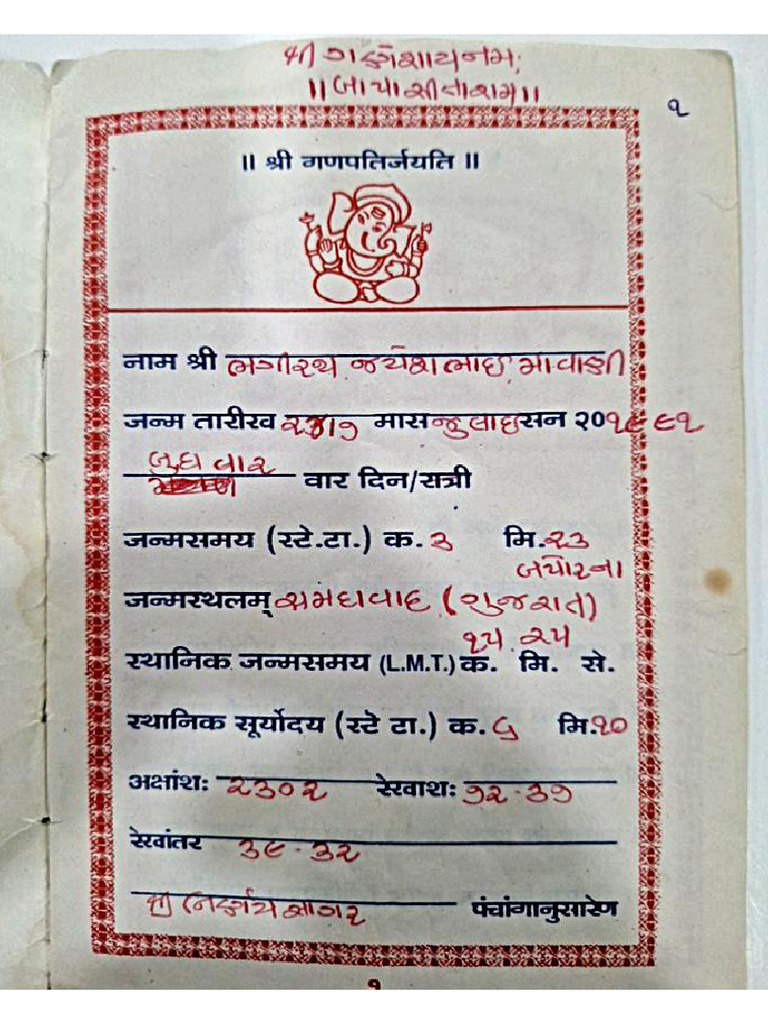 શ્રી ગણેશાય નમ:
॥ બાપા સીતારામ ॥
૧
॥ श्री गणपतिर्जयति ॥
नाम श्री ભગીરથ જયેશભાઇ માવાણી
जन्म तारीख ૨૪।૭ मास જુલાઇ सन २० ૧૯૯૧
બુધ વાર
वार दिन/रात्री
जन्मसमय (स्टे.टा.) क. ૩ मि. ૨૩
બપોરના
जन्मस्थलम् અમદાવાદ (ગુજરાત)
૧૫ ૨૫
स्थानिक जन्मसमय (L.M.T.) क. मि. से.
स्थानिक सूर्योदय (स्टे टा.) क. ૬ मि. ૧૦
अक्षांश: ૨૩૦૨ रेखाश: ૭૨.૩૭
रेखांतर ૩૯.૩૨
શ્રી નિર્ણય સાગર पंचांगानुसारेण
१